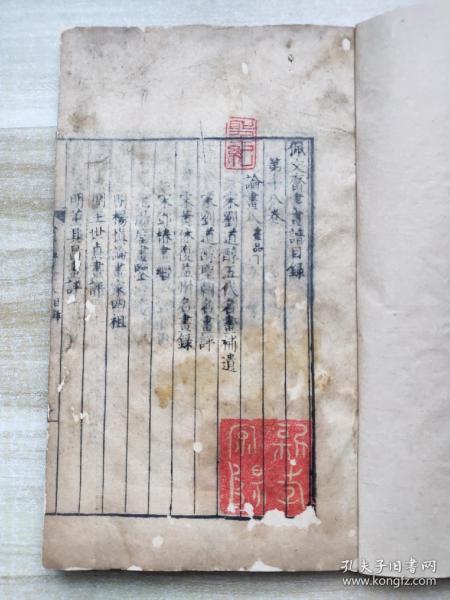 佩文齋書畫譜目錄
第十八卷
論畫八 畫品
宋劉道醇五代名畫補遺
宋劉道醇聖朝名畫評
宋黃休復益州名畫錄
宋鄧椿畫繼
元湯垕畫鑒
明楊慎論畫家四祖
明王世貞畫評
明 畫評
目錄
孔夫子旧书网
www.kongfz.com